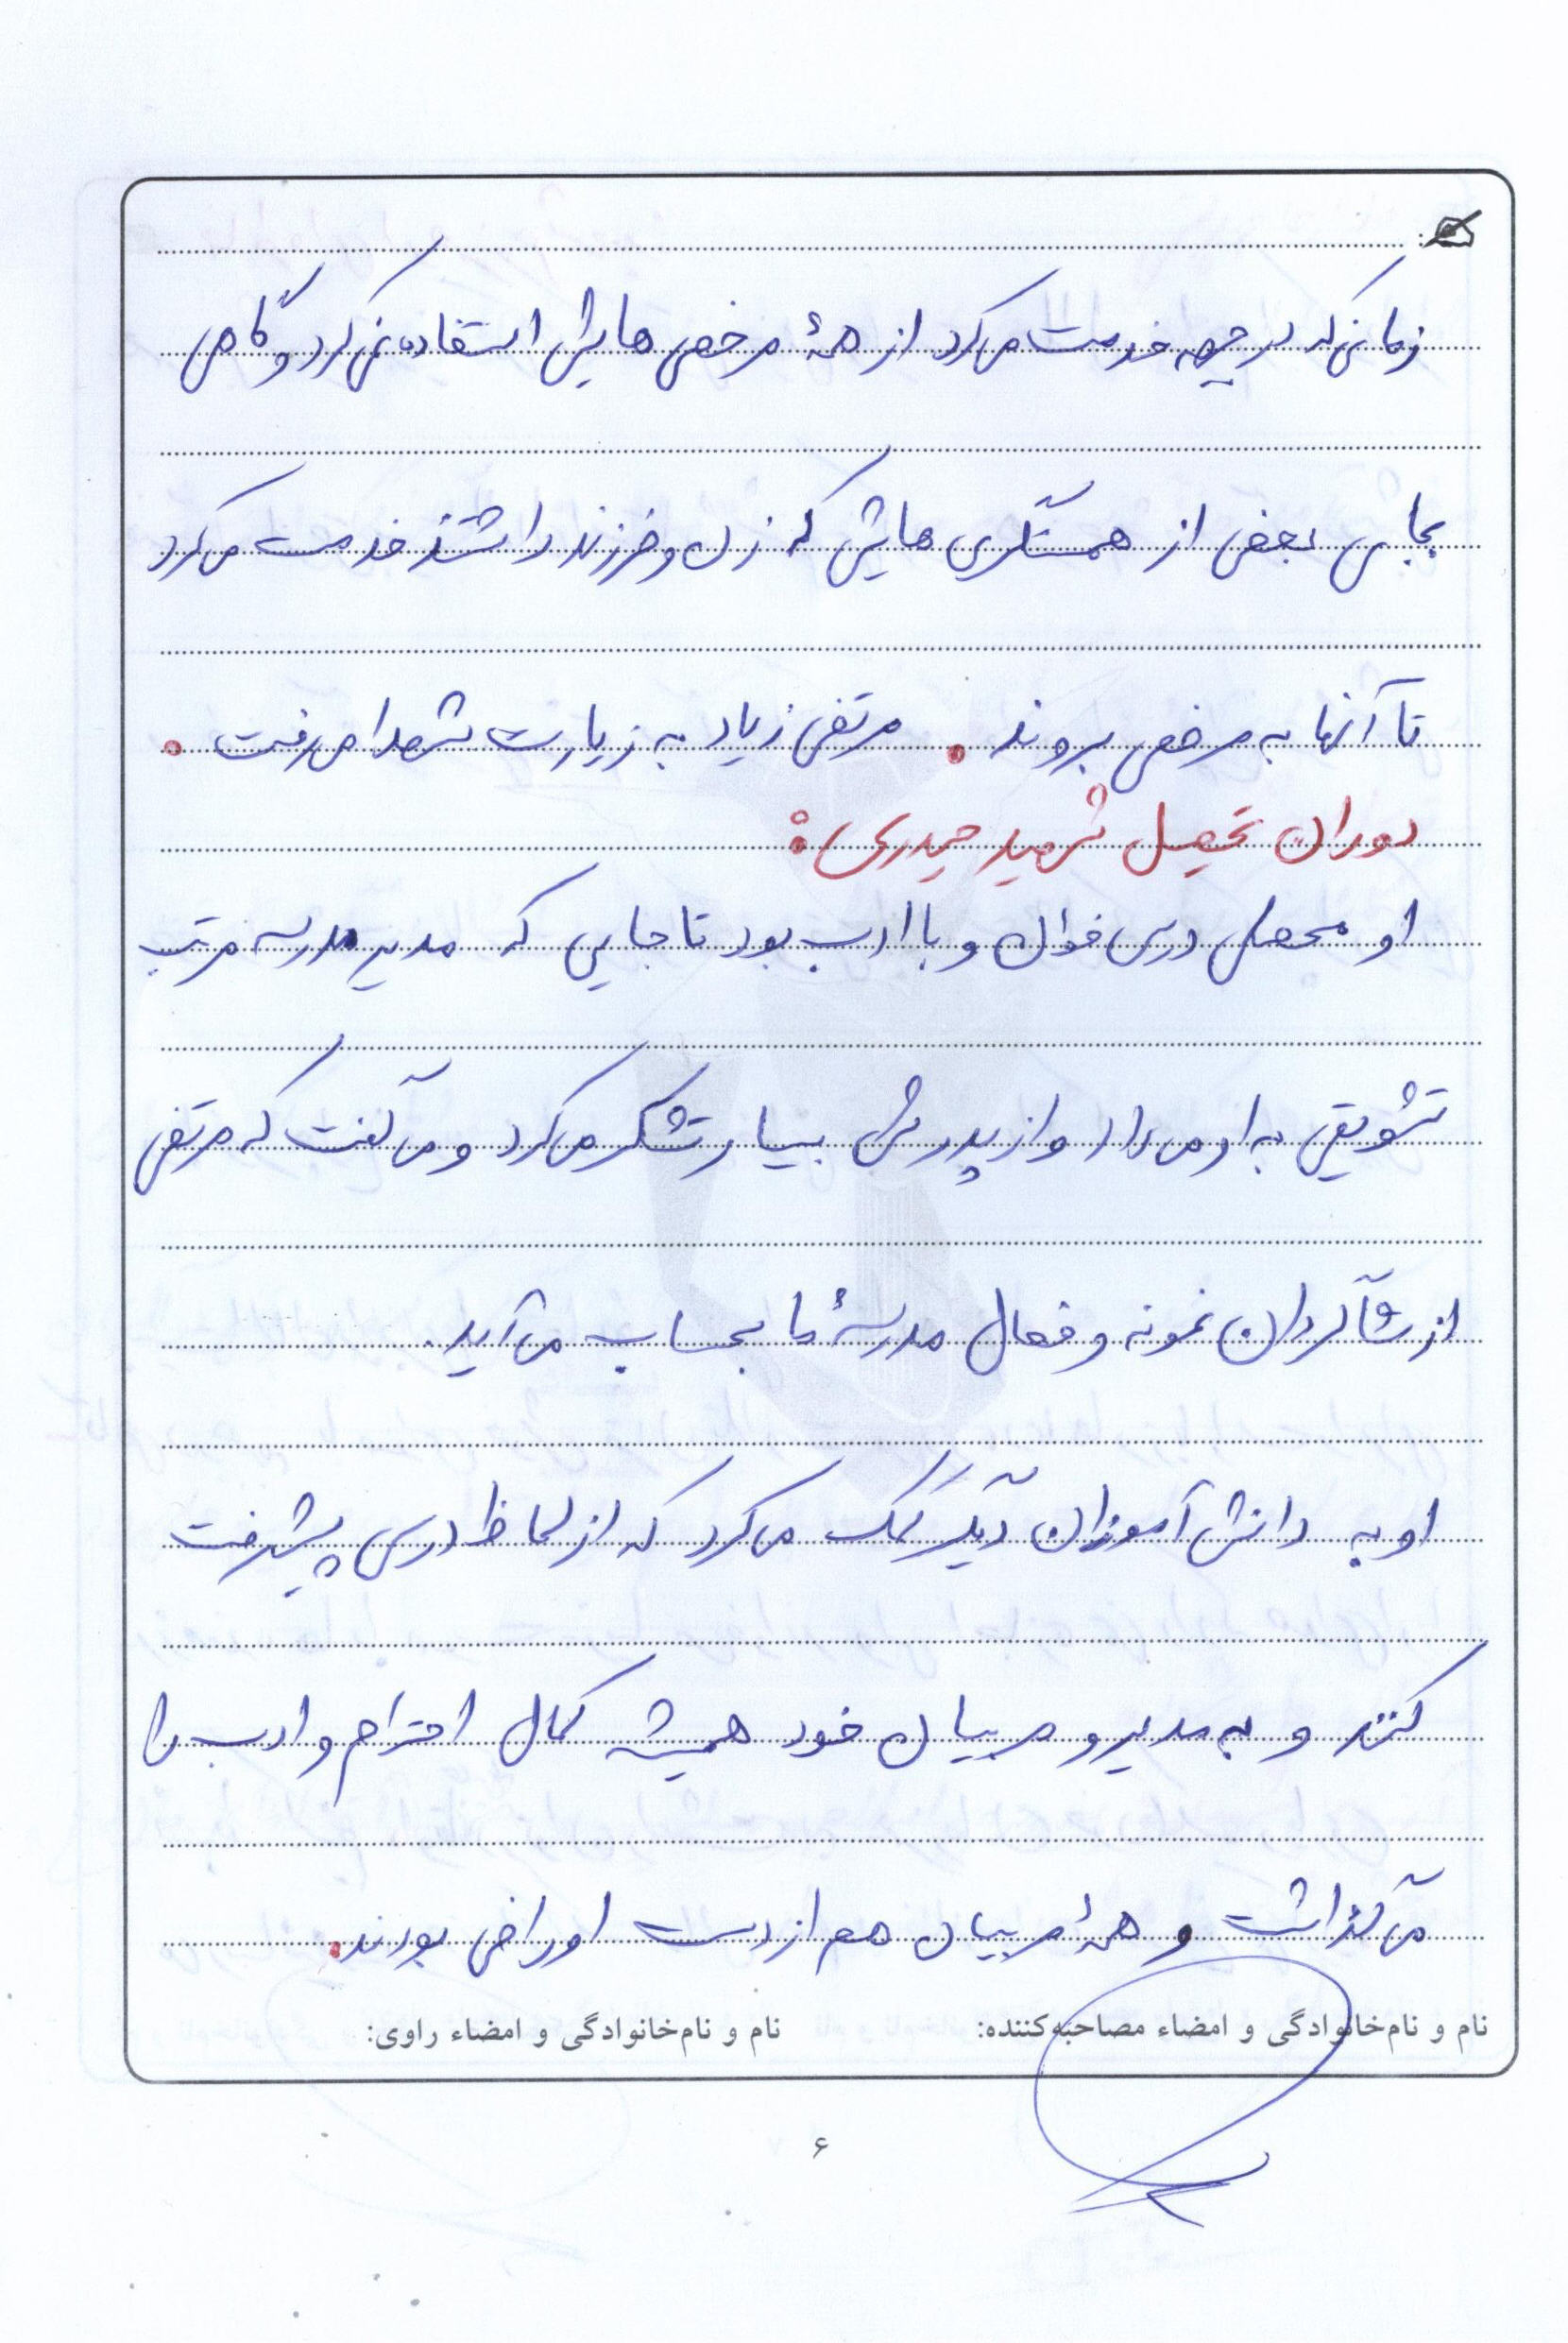 زمانی که در جبهه خدمت می‌کرد از همهٔ مرخصی هایش استفاده نمی‌کرد و گاهی
بجای بعضی از همسنگری هایش که زن و فرزند داشتند خدمت می‌کرد
تا آنها به مرخصی بروند. مرتضی زیاد به زیارت شهدا می رفت.
دوران تحصیل شهید حیدری:
او محصلی درس خوان و با ادب بود تا جایی که مدیر مدرسه مرتب
تشویقی به او می داد و از پدرش بسیار تشکر می‌کرد و می گفت که مرتضی
از شاگردان نمونه و فعال مدرسهٔ ما بحساب می آید.
او به دانش آموزان دیگر کمک می کرد که از لحاظ درسی پیشرفت
کنند و به مدیر و مربیان خود همیشه کمال احترام و ادب را
می گذاشت و همهٔ مربیان هم از دست او راضی بودند.
نام و نام‌خانوادگی و امضاء مصاحبه‌کننده: نام و نام‌خانوادگی و امضاء راوی:
۶